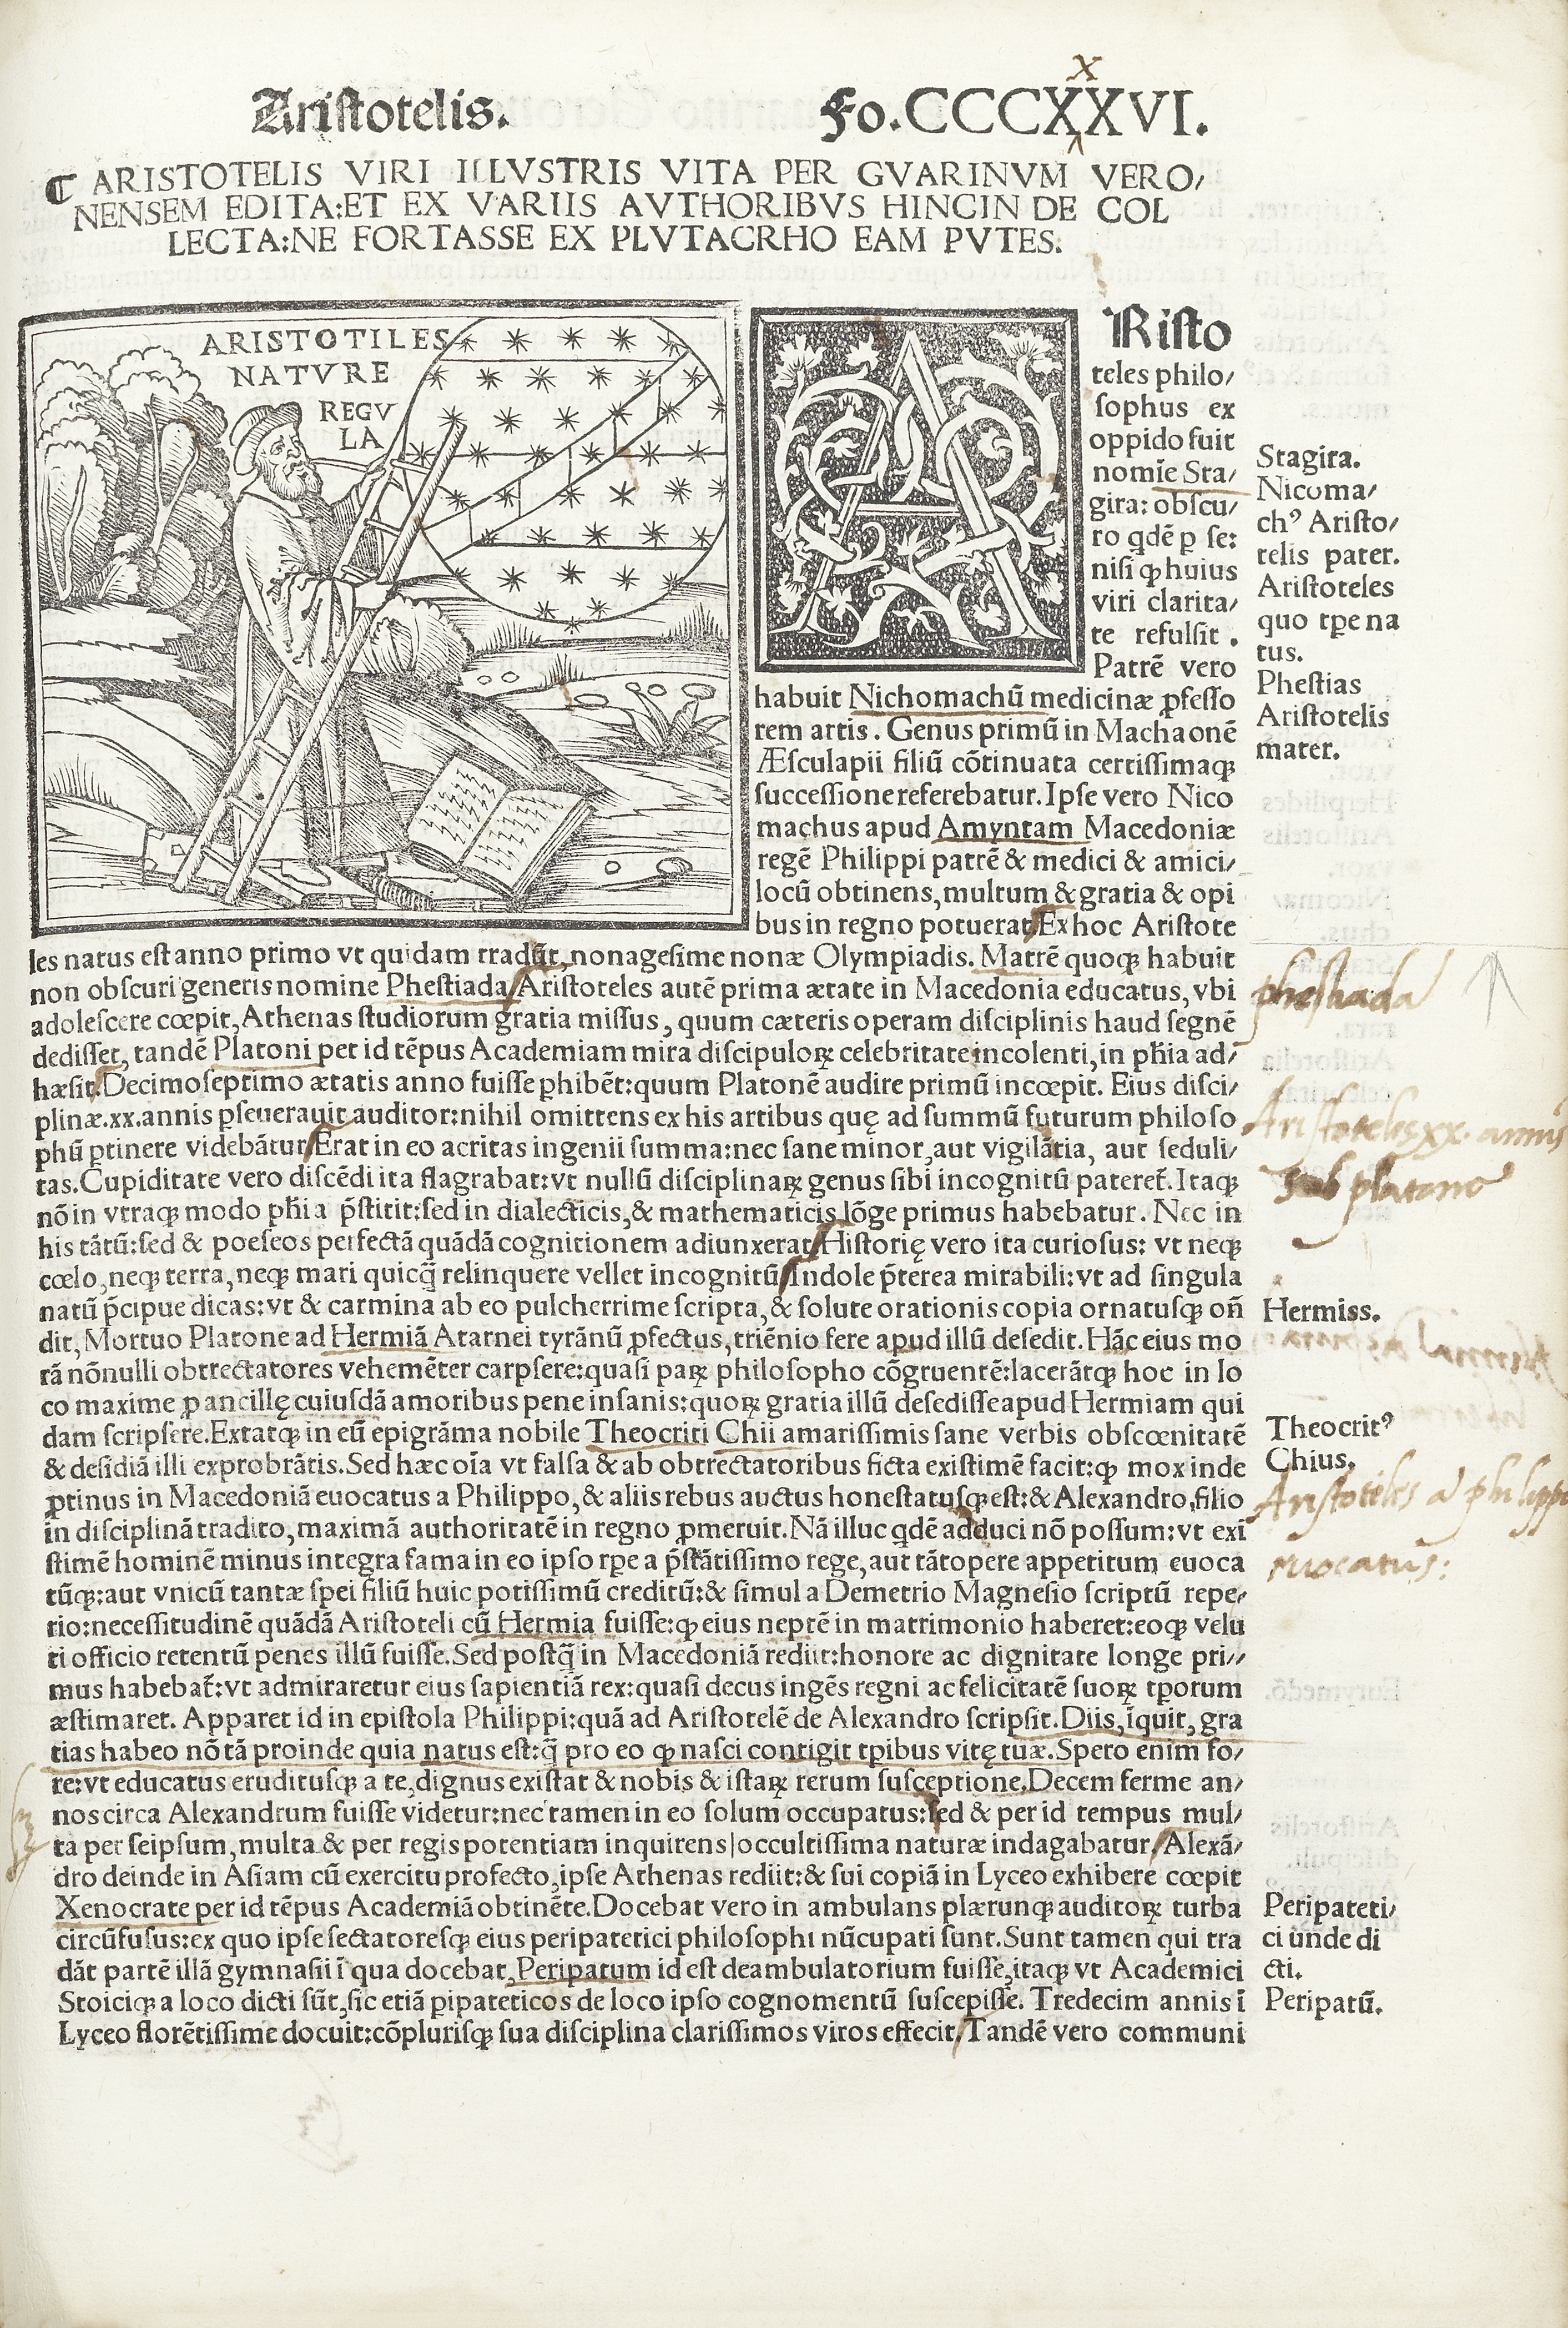 Aristotelis. Fo.CCCXXVI.
X
ARISTOTELIS VIRI ILLVSTRIS VITA PER GVARINVM VERO/
NENSEM EDITA:ET EX VARIIS AVTHORIBVS HINCIN DE COL
LECTA:NE FORTASSE EX PLVTACRHO EAM PVTES.
ARISTOTILES
NATVRE
REGV
LA
A
Risto
teles philo/
sophus ex
oppido fuit
nomīe Sta/
gira: obscu/
ro qdē p se:
nisi ꝙ huius
viri clarita/
te refulsit.
Patrē vero
habuit Nichomachū medicinæ ꝓfesso
rem artis. Genus primū in Machaonē
Æsculapii filiū cōtinuata certissimaꝗ
successione referebatur. Ipse vero Nico
machus apud Amyntam Macedoniæ
regē Philippi patrē & medici & amici/
locū obtinens, multum & gratia & opi
bus in regno potuerat. Ex hoc Aristote
les natus est anno primo vt quidam tradūt, nonagesime nonæ Olympiadis. Matrē quoꝗ habuit
non obscuri generis nomine Phestiada. Aristoteles autē prima ætate in Macedonia educatus, vbi
adolescere cœpit, Athenas studiorum gratia missus, quum cæteris operam disciplinis haud segnē
dedisset, tandē Platoni per id tēpus Academiam mira discipuloꝝ celebritate incolenti, in phīa ad/
hæsit. Decimoseptimo ætatis anno fuisse ꝑhibēt: quum Platonē audire primū incœpit. Eius disci/
plinæ .xx. annis ꝑseuerauit auditor: nihil omittens ex his artibus quę ad summū futurum philoso
phū ꝑtinere videbātur. Erat in eo acritas ingenii summa: nec sane minor, aut vigilātia, aut seduli/
tas. Cupiditate vero discēdi ita flagrabat: vt nullū disciplinaꝝ genus sibi incognitū pateret̄. Itaꝗ
nō in vtraꝗ modo phīa p̄stitit: sed in dialecticis, & mathematicis lōge primus habebatur. Nec in
his tātū: sed & poeseos perfectā quādā cognitionem adiunxerat. Historię vero ita curiosus: vt neꝗ
cœlo, neꝗ terra, neꝗ mari quicq̄ relinquere vellet incognitū. Indole p̄terea mirabili: vt ad singula
natū p̄cipue dicas: vt & carmina ab eo pulcherrime scripta, & solute orationis copia ornatusꝗ oñ
dit, Mortuo Platone ad Hermiā Atarnei tyrānū ꝓfectus, triēnio fere apud illū desedit. Hāc eius mo
rā nōnulli obtrectatores vehemēter carpsere: quasi paꝝ philosopho cōgruentē: lacerātꝗ hoc in lo
co maxime ꝑ ancillę cuiusdā amoribus pene insanis: quoꝝ gratia illū desedisse apud Hermiam qui
dam scripsere. Extatꝗ in eū epigrāma nobile Theocriti Chii amarissimis sane verbis obscœnitatē
& desidiā illi exprobrātis. Sed hæc oīa vt falsa & ab obtrectatoribus ficta existimē facit: ꝙ mox inde
ꝓtinus in Macedoniā euocatus a Philippo, & aliis rebus auctus honestatusꝗ est: & Alexandro, filio
in disciplinā tradito, maximā authoritatē in regno ꝓmeruit. Nā illuc qdē adduci nō possum: vt exi
stimē hominē minus integra fama in eo ipso tꝑe a p̄stātissimo rege, aut tātopere appetitum euoca
tūꝗ: aut vnicū tantæ spei filiū huic potissimū creditū: & simul a Demetrio Magnesio scriptū repe/
rio: necessitudinē quādā Aristoteli cū Hermia fuisse: ꝙ eius neptē in matrimonio haberet: eoꝗ velu
ti officio retentū penes illū fuisse. Sed postq̄ in Macedoniā rediit: honore ac dignitate longe pri//
mus habebat̄: vt admiraretur eius sapientiā rex: quasi decus ingēs regni ac felicitatē suoꝝ tꝑorum
æstimaret. Apparet id in epistola Philippi: quā ad Aristotelē de Alexandro scripsit. Diis, īquit, gra
tias habeo nō tā proinde quia natus est: q̄ pro eo ꝙ nasci contigit tꝑibus vitę tuæ. Spero enim fo/
re: vt educatus eruditusꝗ a te, dignus existat & nobis & istaꝝ rerum susceptione. Decem ferme an/
nos circa Alexandrum fuisse videtur: nec tamen in eo solum occupatus: sed & per id tempus mul/
ta per seipsum, multa & per regis potentiam inquirens occultissima naturæ indagabatur. Alexā/
dro deinde in Asiam cū exercitu profecto, ipse Athenas rediit: & sui copiā in Lyceo exhibere cœpit
Xenocrate per id tēpus Academiā obtinēte. Docebat vero in ambulans plærunꝗ auditoꝝ turba
circūfusus: ex quo ipse sectatoresꝗ eius peripatetici philosophi nūcupati sunt. Sunt tamen qui tra
dāt partē illā gymnasii ī qua docebat, Peripatum id est deambulatorium fuisse, itaꝗ vt Academici
Stoiciꝗ a loco dicti sūt, sic etiā ꝑipateticos de loco ipso cognomentū suscepisse. Tredecim annis ī
Lyceo florētissime docuit: cōplurisꝗ sua disciplina clarissimos viros effecit. Tandē vero communi
Stagira.
Nicoma/
chꝰ Aristo/
telis pater.
Aristoteles
quo tꝑe na
tus.
Phestias
Aristotelis
mater.
phestiada
Aristoteles xx. annis
sub platone
Hermiss.
Theocritꝰ
Chius.
Aristoteles a philippo
euocatus:
Peripateti/
ci unde di
cti.
Peripatū.